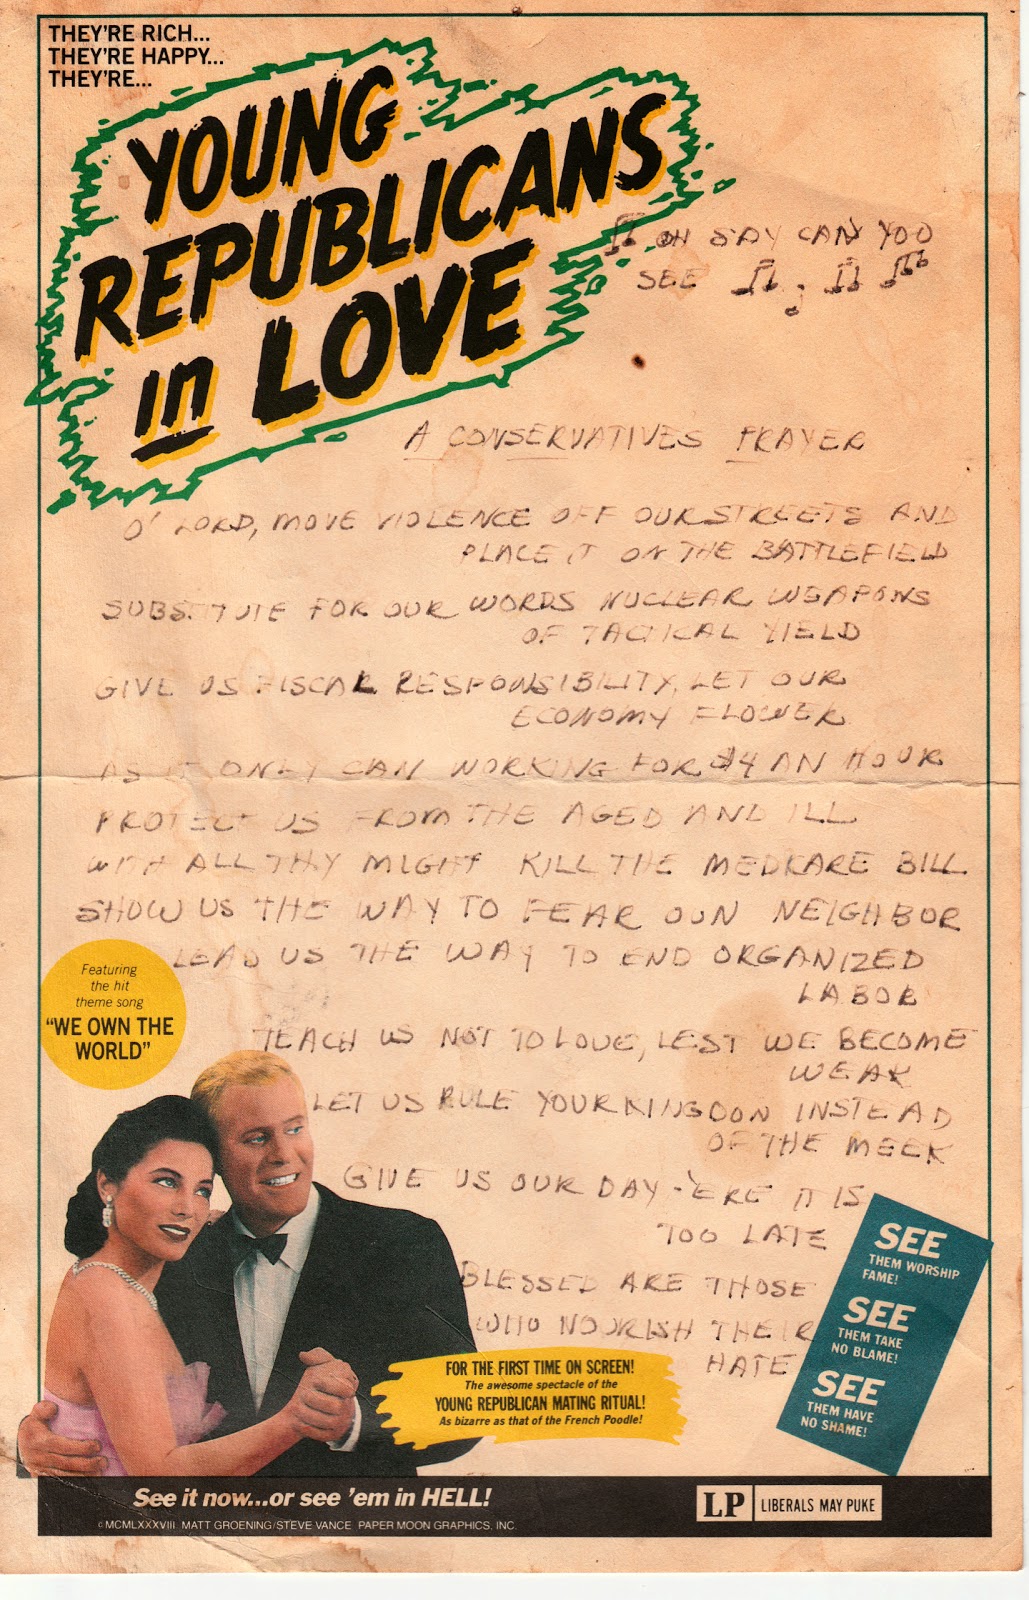 THEY'RE RICH...
THEY'RE HAPPY...
THEY'RE...
YOUNG
REPUBLICANS
in LOVE
OH SAY CAN YOU
SEE
A CONSERVATIVES PRAYER
O' LORD, MOVE VIOLENCE OFF OUR STREETS AND
PLACE IT ON THE BATTLEFIELD
SUBSTITUTE FOR OUR WORDS NUCLEAR WEAPONS
OF TACTICAL YIELD
GIVE US FISCAL RESPONSIBILITY, LET OUR
ECONOMY FLOWER
AS IT ONLY CAN WORKING FOR $4 AN HOUR
PROTECT US FROM THE AGED AND ILL
WITH ALL THY MIGHT KILL THE MEDICARE BILL
SHOW US THE WAY TO FEAR OUR NEIGHBOR
LEAD US THE WAY TO END ORGANIZED
LABOR
TEACH US NOT TO LOVE, LEST WE BECOME
WEAK
LET US RULE YOUR KINGDON INSTEAD
OF THE MEEK
GIVE US OUR DAY - 'ERE IT IS
TOO LATE
BLESSED ARE THOSE
WHO NOURISH THEIR
HATE
Featuring
the hit
theme song
"WE OWN THE
WORLD"
SEE
THEM WORSHIP
FAME!
SEE
THEM TAKE
NO BLAME!
SEE
THEM HAVE
NO SHAME!
FOR THE FIRST TIME ON SCREEN!
The awesome spectacle of the
YOUNG REPUBLICAN MATING RITUAL!
As bizarre as that of the French Poodle!
See it now...or see 'em in HELL!
© MCMLXXXVIII MATT GROENING/STEVE VANCE PAPER MOON GRAPHICS, INC.
LP LIBERALS MAY PUKE